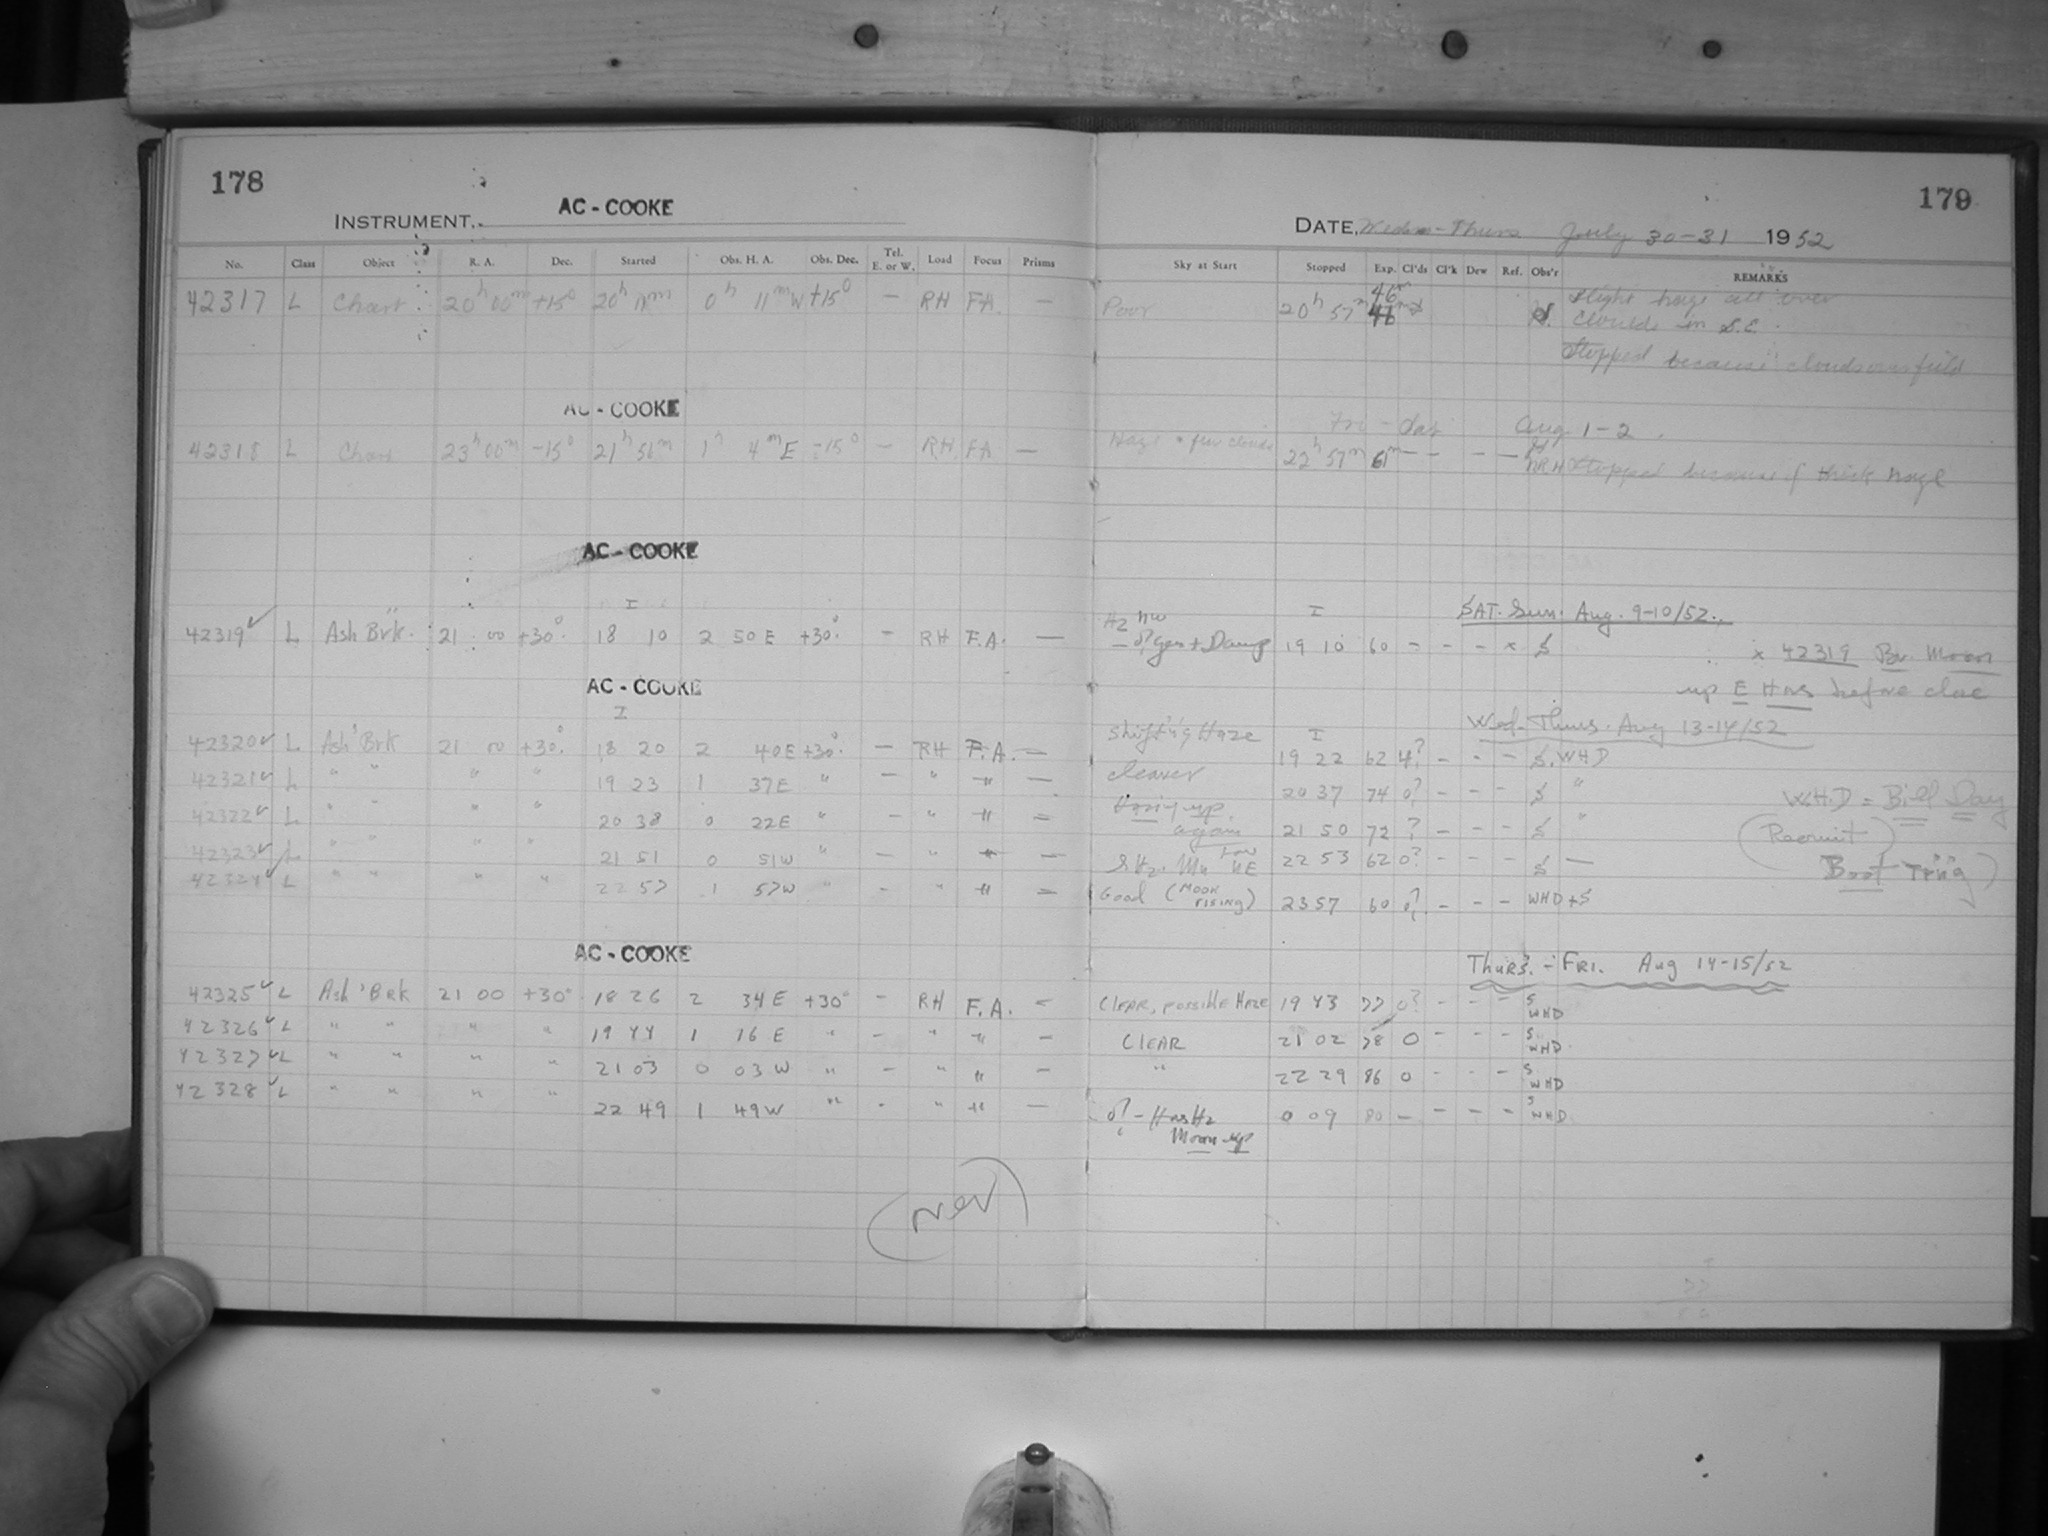 178
INSTRUMENT. AC - COOKE
No. Class Object R. A. Dec. Started Obs. H. A. Obs. Dec. Tel. E. or W. Load Focus Prisms
42317 L Chart 20h 00m +15° 20h 11m 0h 11m W +15° — RH F.A. —
AC - COOKE
42318 L Chart 23h 00m -15° 21h 56m 1h 4m E -15° — RH FA —
AC - COOKE
I
42319 ✓ L Ash Brk. 21 00 +30° 18 10 2 50 E +30° — RH F.A. —
AC - COOKE
I
42320 ✓ L Ash' Brk 21 00 +30° 18 20 2 40E +30° — RH F.A. —
42321 ✓ L " " " " 19 23 1 37E " — " " —
42322 ✓ L " " " " 20 38 0 22E " — " " =
42323 ✓ L " " " " 21 51 0 51W " — " " —
42324 ✓ L " " " " 22 57 1 57W " - " " =
AC - COOKE
42325 ✓ L Ash' Brk 21 00 +30° 18 26 2 34 E +30° - RH F.A. -
42326 ✓ L " " " " 19 44 1 16 E " - " " —
42327 ✓ L " " " " 21 03 0 03 W " - " " -
42328 ✓ L " " " " 22 49 1 49W " - " " —
(Nev)
179
DATE, July 30-31 1952
Sky at Start Stopped Exp. Cl'ds Cl'k Dew Ref. Obs'r REMARKS
Poor 20h 57m 46m Slight haze all over
Clouds in S.E.
Stopped because clouds over field
Fri - Sat Aug 1-2.
Haze & few clouds 22h 57m 61m — — — — RH Stopped because of thick haze
SAT. Sun. Aug. 9-10/52
Hz NW I
+ Damp 19 10 60 - - - x S x 42319 Br. Moon
up E Hrs before close
Wed-Thurs. Aug 13-14/52
Shift'g Haze I
19 22 62 4? - - - S. WHD
clearer 20 37 74 0? - - - S "
Haz'g up again 21 50 72 ? - - - S "
W.H.D = Bill Day
(Recruit
Boot Tr'n'g)
Low NE 22 53 62 0? - - - S —
Good (MOON RISING) 23 57 60 0? - - - WHD + S
Thurs. - FRI. Aug 14-15/52
CLEAR, possible Haze 19 43 77 0? - - - S WHD
CLEAR 21 02 78 0 - - - S WHD
" 22 29 86 0 - - - S WHD
Moon up 0 09 80 - - - - S WHD